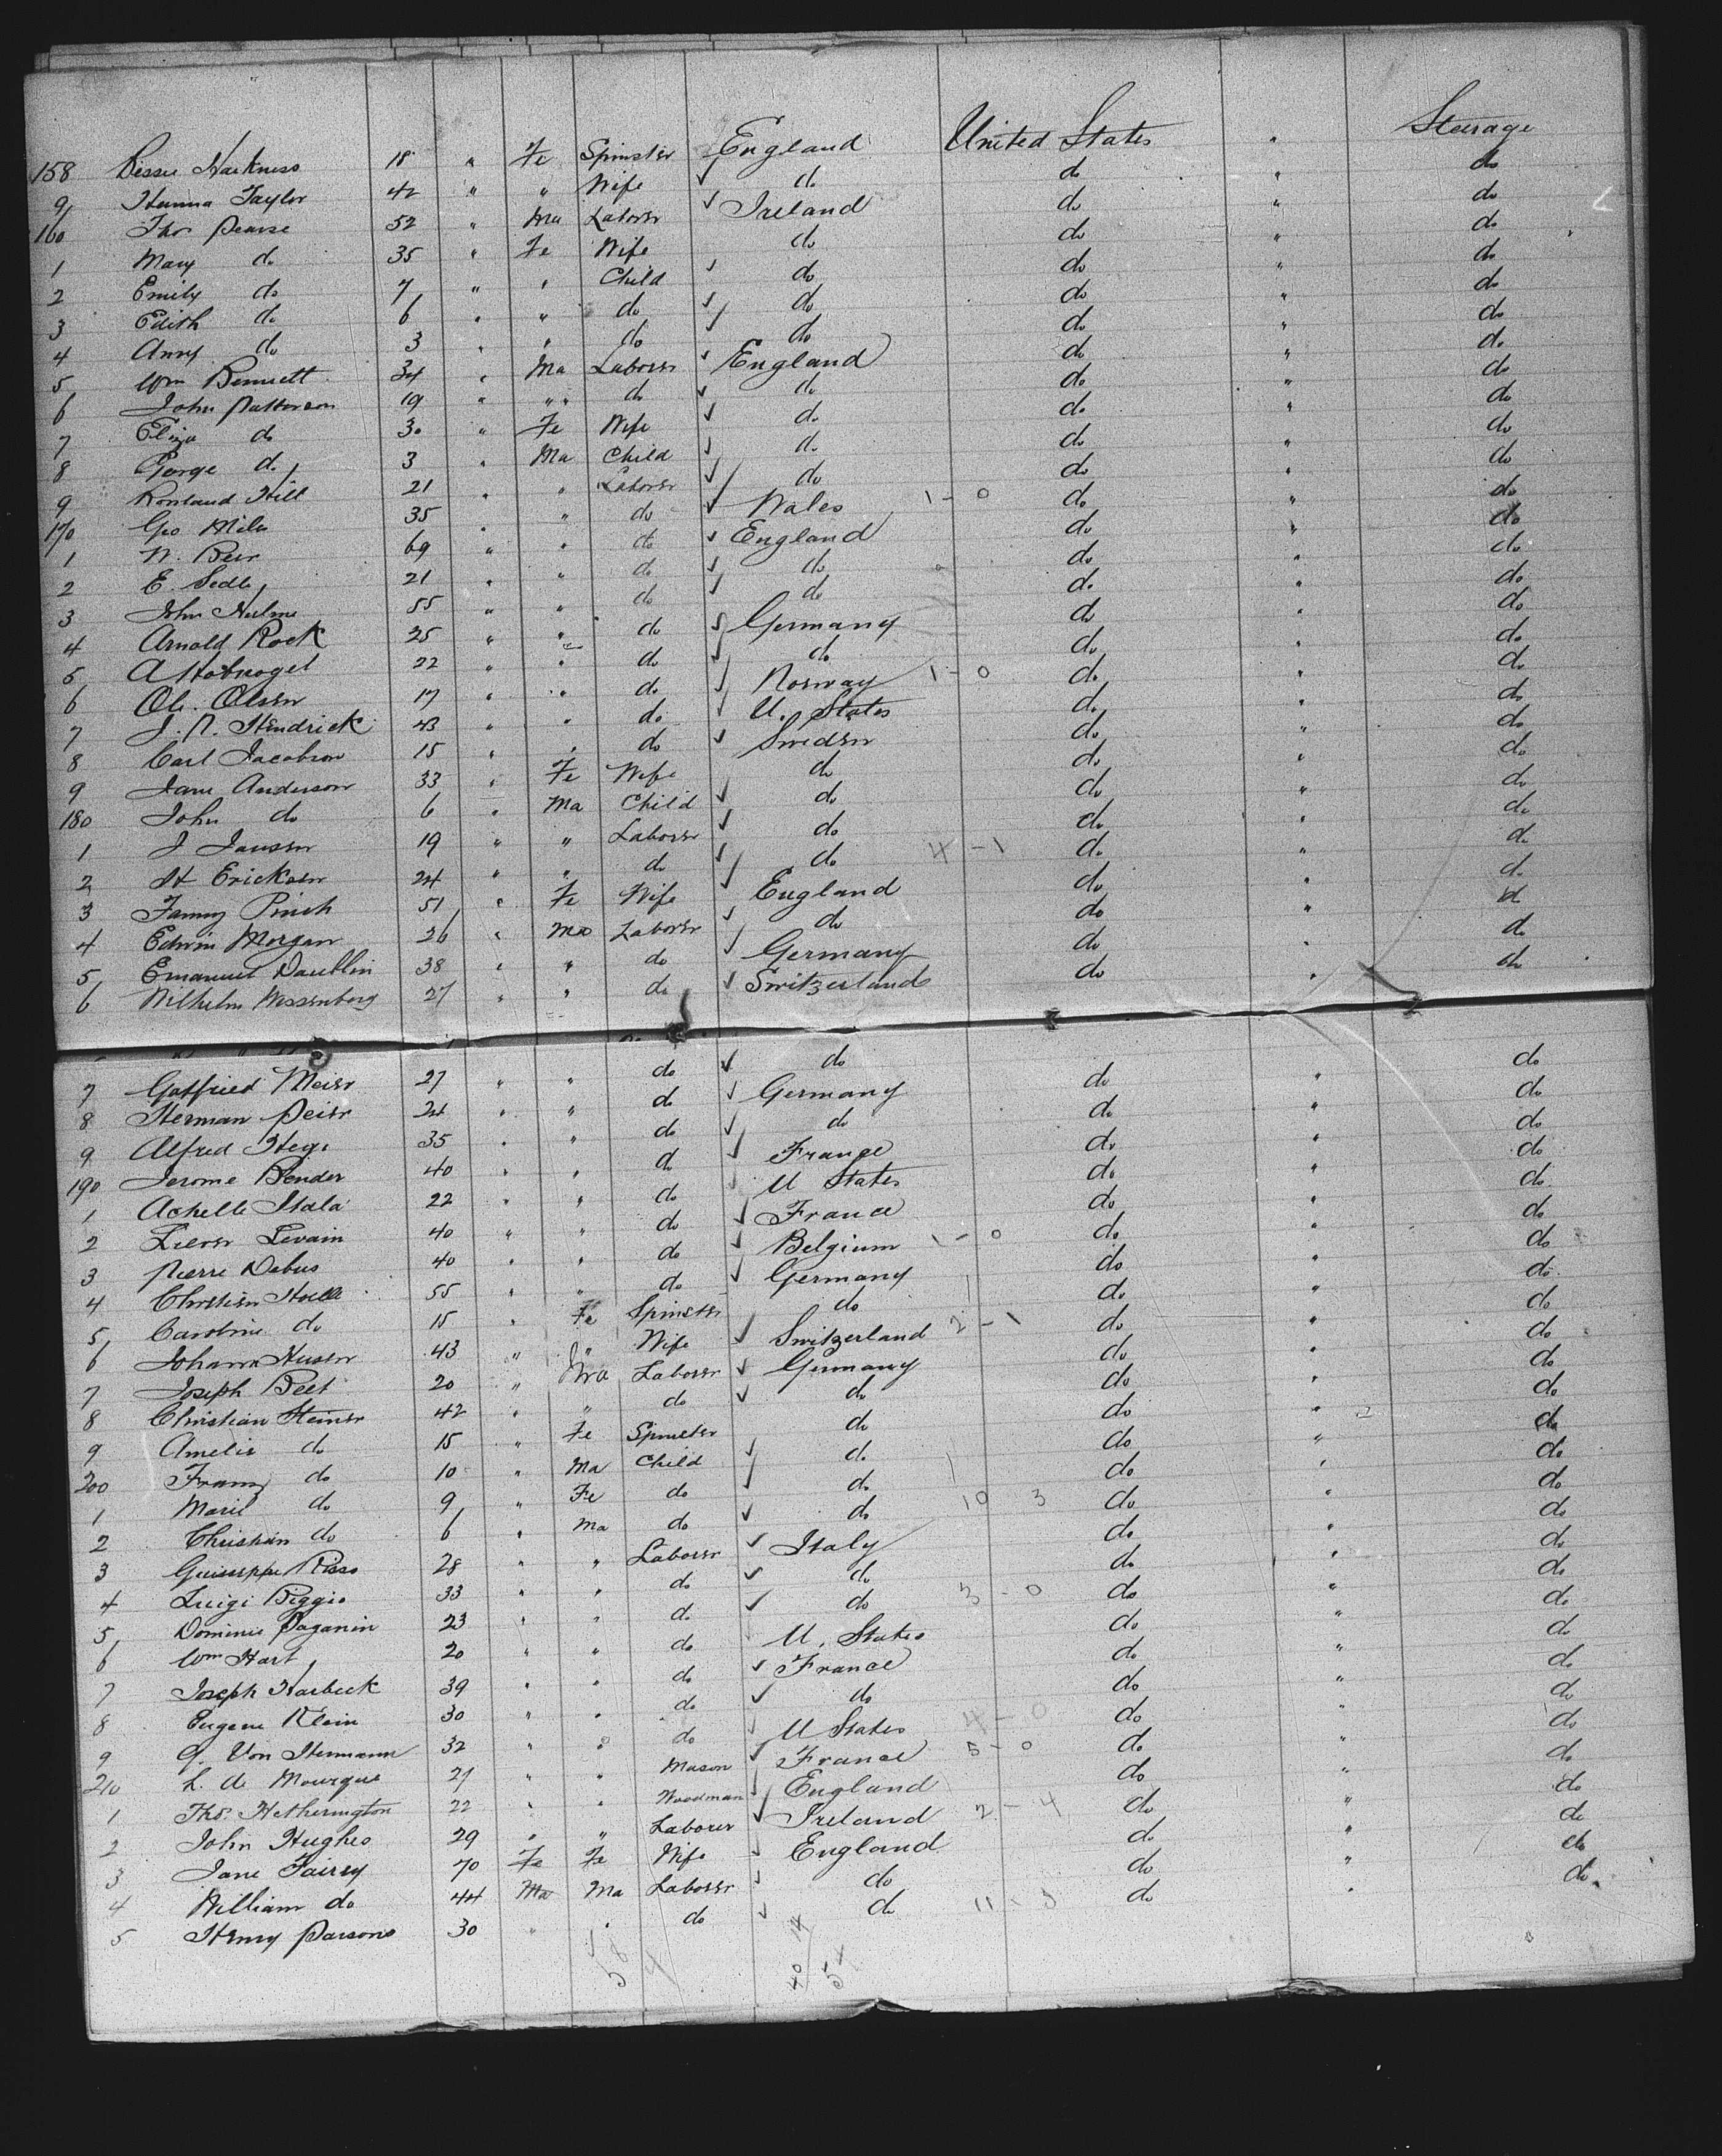 158 Bessie Harkness 18 " Fe Spinster England United States " Steerage
9 Hanna Taylor 42 " " Wife ✓ do do " do
160 Thos Pearse 52 " Ma Laborer ✓ Ireland do " do
1 Mary do 35 " Fe Wife do do " do
2 Emily do 7 " " Child ✓ do do " do
3 Edith do 6 " " do ✓ do do " do
4 Anny do 3 " " do ✓ do do " do
5 Wm Bennett 34 " Ma Laborer ✓ England do " do
6 John Patterson 19 " " do ✓ do do " do
7 Eliza do 30 " Fe Wife ✓ do do " do
8 George do 3 " Ma Child ✓ do do " do
9 Rowland Hill 21 " " Laborer ✓ do do " do
170 Geo Miles 35 " " do ✓ Wales 1 - 0 do " do
1 N. Beer 69 " " do ✓ England do " do
2 E. Sedle 21 " " do ✓ do do " do
3 John Hulme 55 " " do ✓ do do " do
4 Arnold Rock 25 " " do ✓ Germany do " do
5 22 " " do ✓ do do " do
6 Ole Olsen 17 " " do ✓ Norway 1 - 0 do " do
7 J. N. Hendrick 43 " " do U. States do " do
8 Carl Jacobson 15 " " do ✓ Sweden do " do
9 Jane Anderson 33 " Fe Wife do do " do
180 John do 6 " Ma Child ✓ do do " do
1 J Jansen 19 " " Laborer ✓ do do " do
2 H Ericksen 24 " " do ✓ do 4 - 1 do " do
3 Fanny Pinch 51 " Fe Wife ✓ England do " do
4 Edwin Morgan 26 " Ma Laborer ✓ do do " do
5 Emanuel Daublin 38 " " do ✓ Germany do " do
6 Wilhelm Wessenberg 27 " " do ✓ Switzerland do " do
7 Gottfried Meier 27 " " do ✓ do do " do
8 Herman Peier 24 " " do ✓ Germany do " do
9 Alfred Hegi 35 " " do ✓ do do " do
190 Jerome Bender 40 " " do ✓ France do " do
1 Achelle Itala 22 " " do U States do " do
2 Levain 40 " " do ✓ France do " do
3 Pierre Debus 40 " " do ✓ Belgium 1 - 0 do " do
4 Christian 55 " " do ✓ Germany do " do
5 Caroline do 15 " Fe Spinster do do " do
6 Johann Husen 43 " " Wife ✓ Switzerland 2 - 1 do " do
7 Joseph Beet 20 " Ma Laborer ✓ Germany do " do
8 Christian Steiner 42 " " do ✓ do do " do
9 Amelie do 15 " Fe Spinster do do " do
200 Franz do 10 " Ma Child ✓ do do " do
1 Marie do 9 " Fe do ✓ do do " do
2 Christian do 6 " Ma do ✓ do 10 3 do " do
3 Guiseppe Risso 28 " " Laborer ✓ Italy do " do
4 Luigi Biggio 33 " " do ✓ do do " do
5 Dominic Paganin 23 " " do ✓ do 3 - 0 do " do
6 Wm Hart 20 " " do U. States do " do
7 Joseph Harbeck 39 " " do ✓ France do " do
8 Eugene Klein 30 " " do ✓ do do " do
9 G. Von Hermann 32 " " do U States 4 - 0 do " do
210 L. de Mourgue 27 " " Mason ✓ France 5 - 0 do " do
1 Thos. Hetherington 22 " " Woodman ✓ England do " do
2 John Hughes 29 " " Laborer ✓ Ireland 2 - 4 do " do
3 Jane Fairey 70 Fe Fe Wife ✓ England do " do
4 William do 44 Ma Ma Laborer ✓ do do " do
5 Henry Parsons 30 " " do ✓ do 11 - 3 do " do
58 4 40 14 54